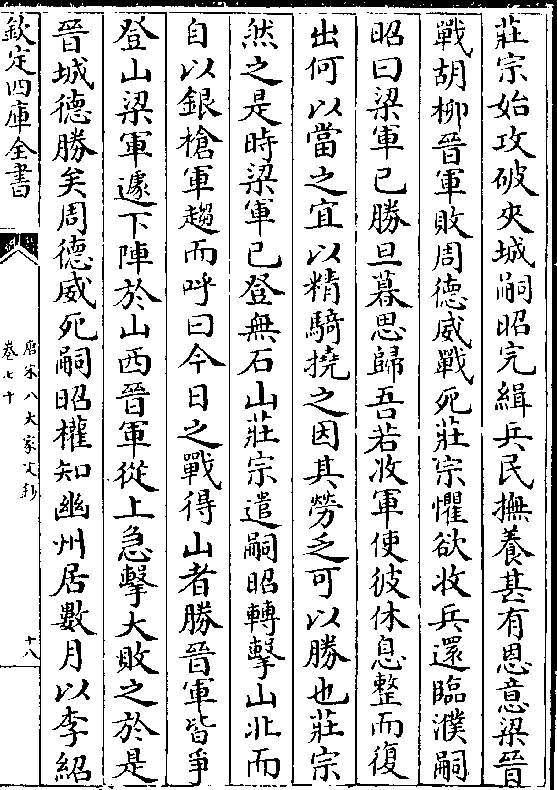 莊宗始攻破夾城嗣昭完緝兵民撫養甚有恩意梁晉
戰胡柳晉軍敗周德威戰死莊宗懼欲收兵還臨濮嗣
昭曰梁軍已勝旦暮思歸吾若收軍使彼休息整而復
出何以當之宜以精騎撓之因其勞乏可以勝也莊宗
然之是時梁軍已登無石山莊宗遣嗣昭轉擊山北而
自以銀槍軍趨而呼曰今日之戰得山者勝晉軍皆爭
登山梁軍遽下陣於山西晉軍從上急擊大敗之於是
晉城德勝矣周德威死嗣昭權知幽州居數月以李紹
欽定四庫全書
唐宋八大家文鈔
卷七十
十八